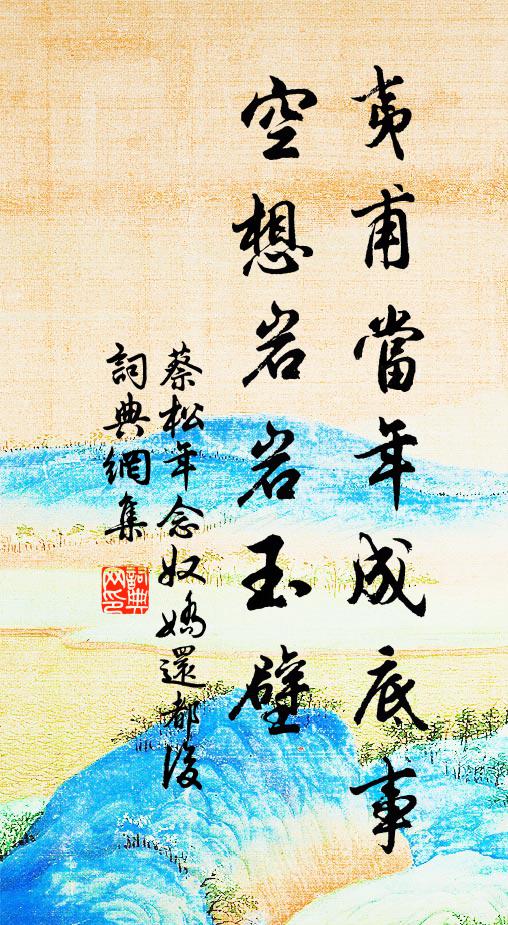 夷甫當年成底事
空想岩岩玉壁
蔡松年念奴嬌還都後
詞典網集
詞典
网印